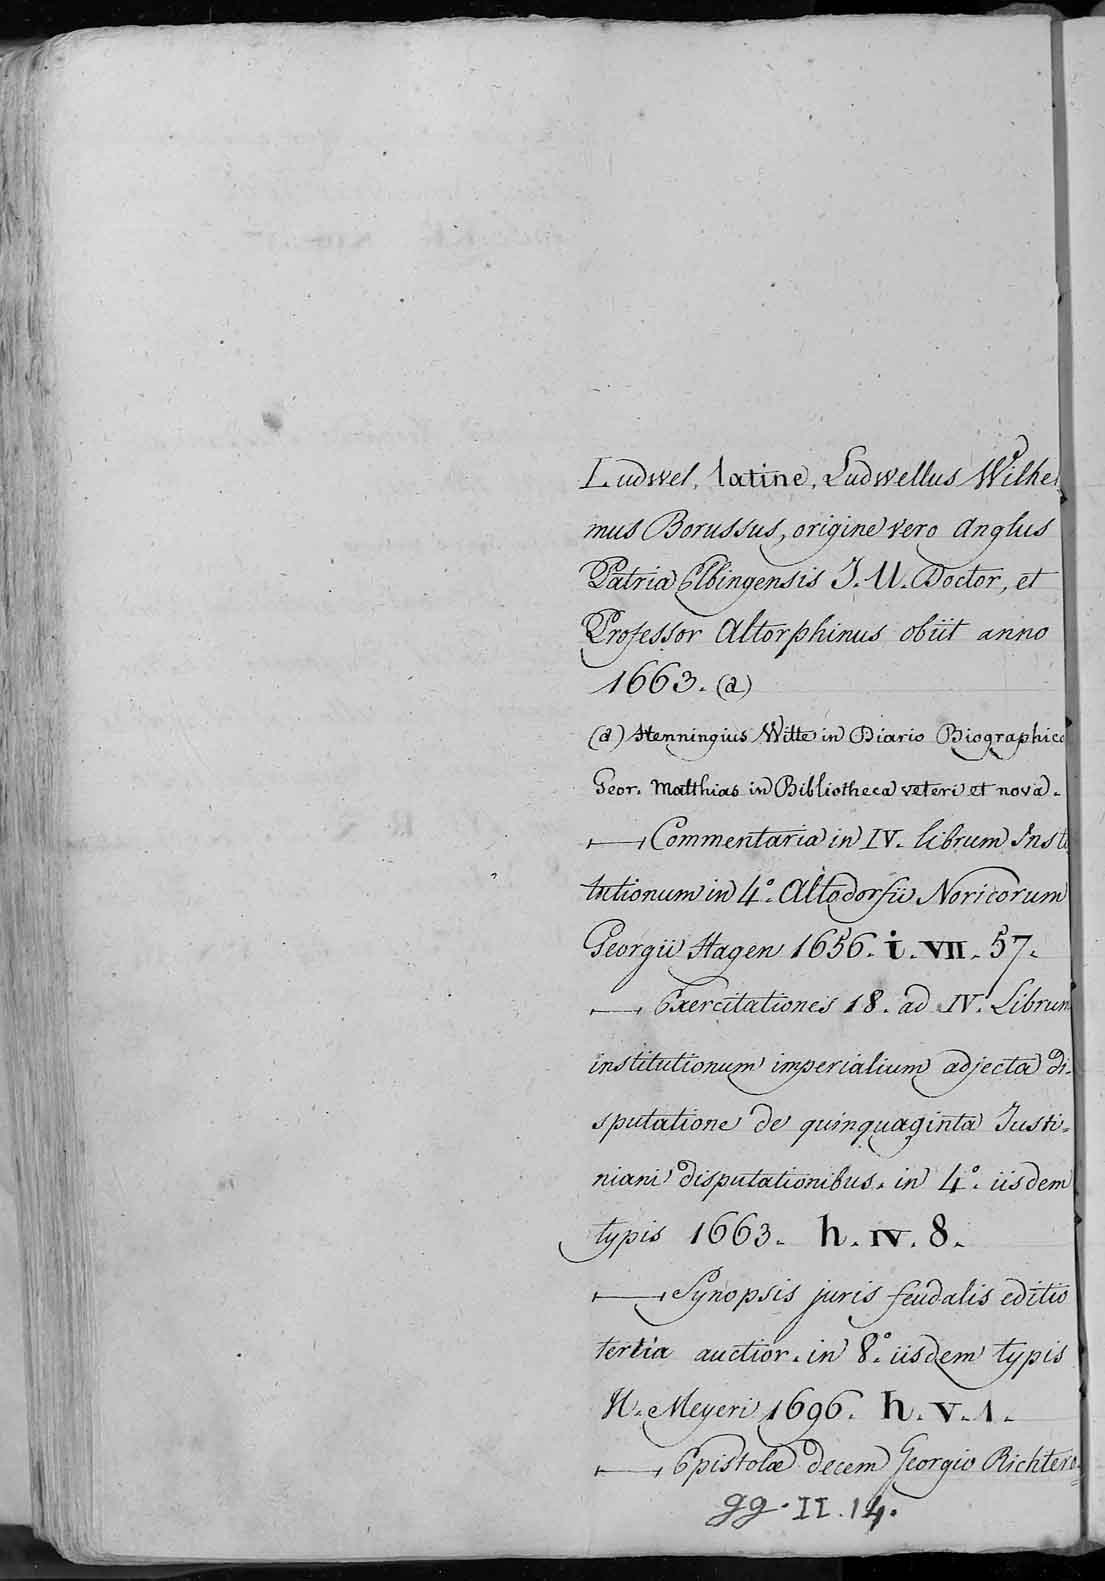 Ludwel, latine, Ludwellus Wilhel
mus Borussus, origine vero Anglus
Patria Elbingensis J. U. Doctor, et
Professor Altorphinus obiit anno
1663. (a)
(a) Henningius Witte in Diario Biographico
Geor. Matthias in Bibliotheca veteri et nova.
Commentaria in IV. librum Insti
tutionum in 4.° Altodorfii Noricorum
Georgii Hagen 1656. i. VII. 57.
Exercitationes 18. ad IV. Librum
institutionum imperialium adjecta di-
sputatione de quinquaginta Justi-
niani disputationibus. in 4.° iisdem
typis 1663. h. IV. 8.
Synopsis juris feudalis editio
tertia auctior. in 8.° iisdem typis
H. Meyeri 1696. h. V. 1.
Epistolæ decem Georgio Richtero.
gg. II. 14.